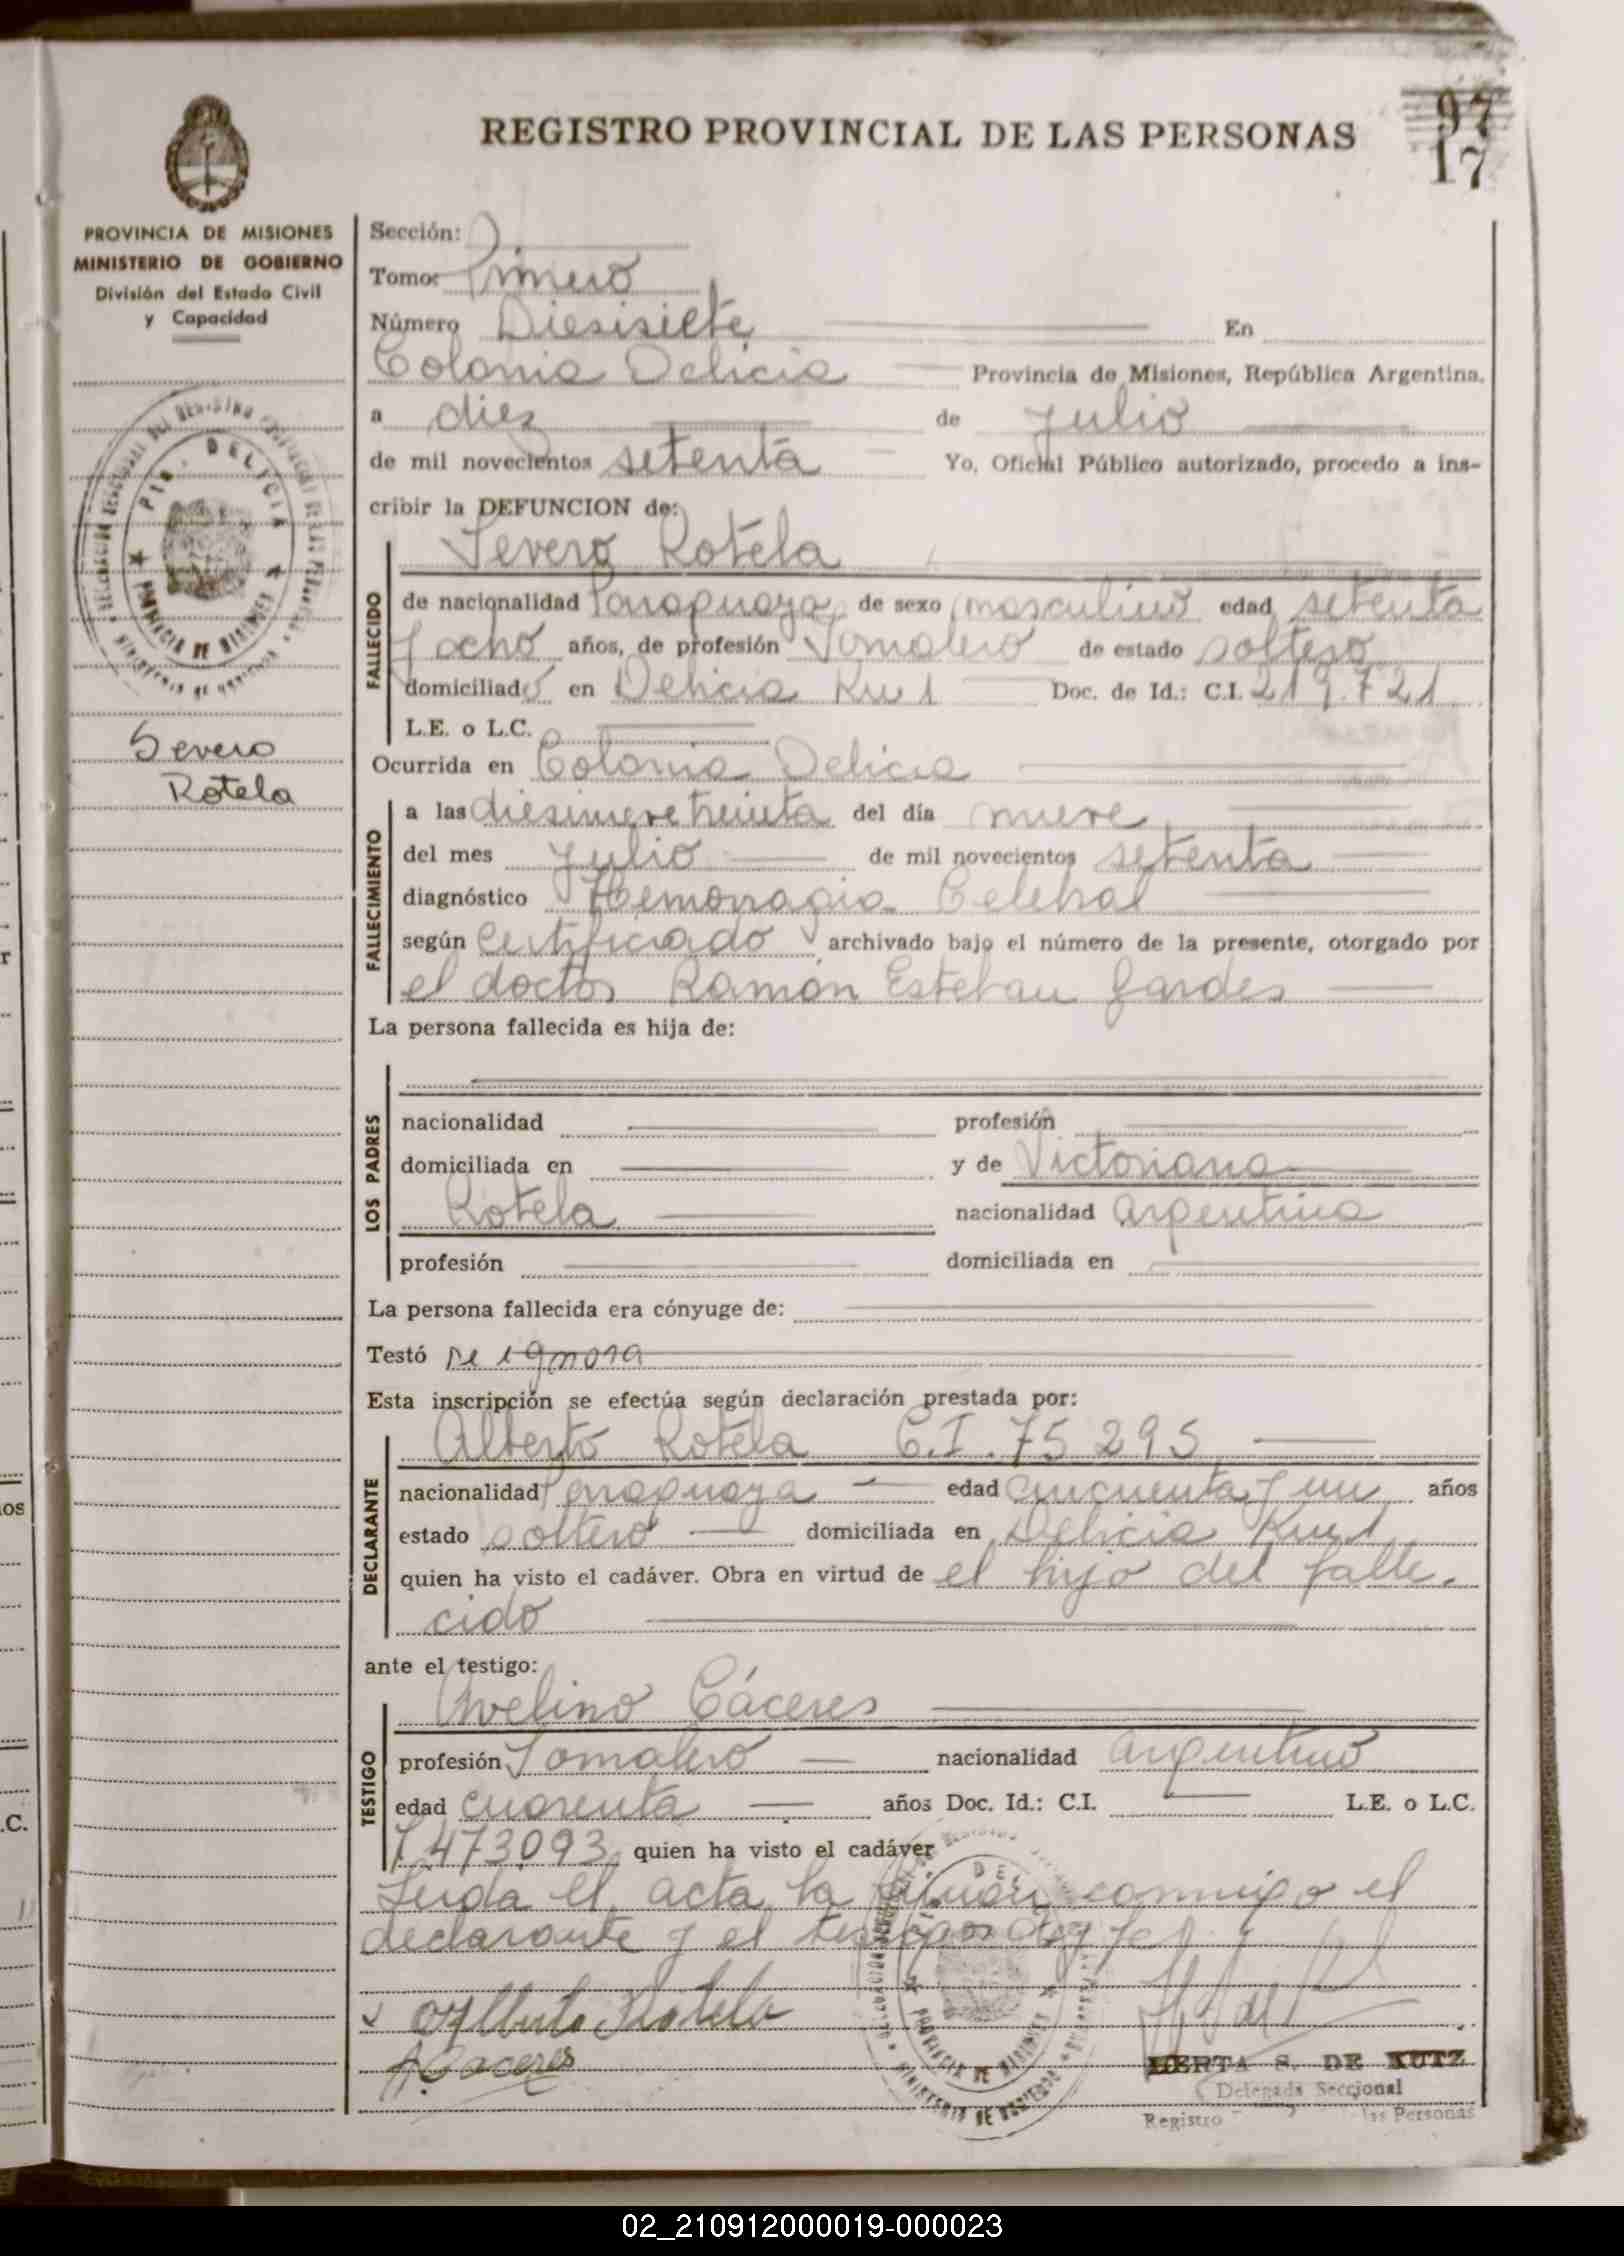 97
17
REGISTRO PROVINCIAL DE LAS PERSONAS
PROVINCIA DE MISIONES
MINISTERIO DE GOBIERNO
División del Estado Civil
y Capacidad
PTO. DELICIA
PROVINCIA DE MISIONES
Severo
Rotela
Sección:
Tomo: Primero
Número Diesisiete En
Colonia Delicia Provincia de Misiones, República Argentina.
a diez de julio
de mil novecientos setenta Yo, Oficial Público autorizado, procedo a ins-
cribir la DEFUNCION de:
Severo Rotela
FALLECIDO
de nacionalidad Paraguaya de sexo masculino edad setenta
y ocho años, de profesión Jornalero de estado soltero
domiciliado en Delicia Km 1 Doc. de Id.: C.I. 219.721
L.E. o L.C.
Ocurrida en Colonia Delicia
FALLECIMIENTO
a las diesinueve treinta del día nueve
del mes julio de mil novecientos setenta
diagnóstico Hemorragia Celebral
según Certificado, archivado bajo el número de la presente, otorgado por
el doctor Ramón Esteban Gardes
La persona fallecida es hija de:
LOS PADRES
nacionalidad profesión
domiciliada en y de Victoriana
Rotela nacionalidad argentina
profesión domiciliada en
La persona fallecida era cónyuge de:
Testó se ignora
Esta inscripción se efectúa según declaración prestada por:
Alberto Rotela C.I. 75 295
DECLARANTE
nacionalidad Paraguaya edad cincuenta y un años
estado soltero domiciliada en Delicia Km 1
quien ha visto el cadáver. Obra en virtud de el hijo del falle-
cido
ante el testigo:
Avelino Cáceres
TESTIGO
profesión Jornalero nacionalidad argentino
edad cuarenta años Doc. Id.: C.I. L.E. o L.C.
7.473.093 quien ha visto el cadáver
Leida el acta la firman conmigo el
declarante y el testigo doy fe
Alberto Rotela
A. Caceres
HERTA S. DE KUTZ
Delegada Seccional
Registro las Personas
02_210912000019-000023